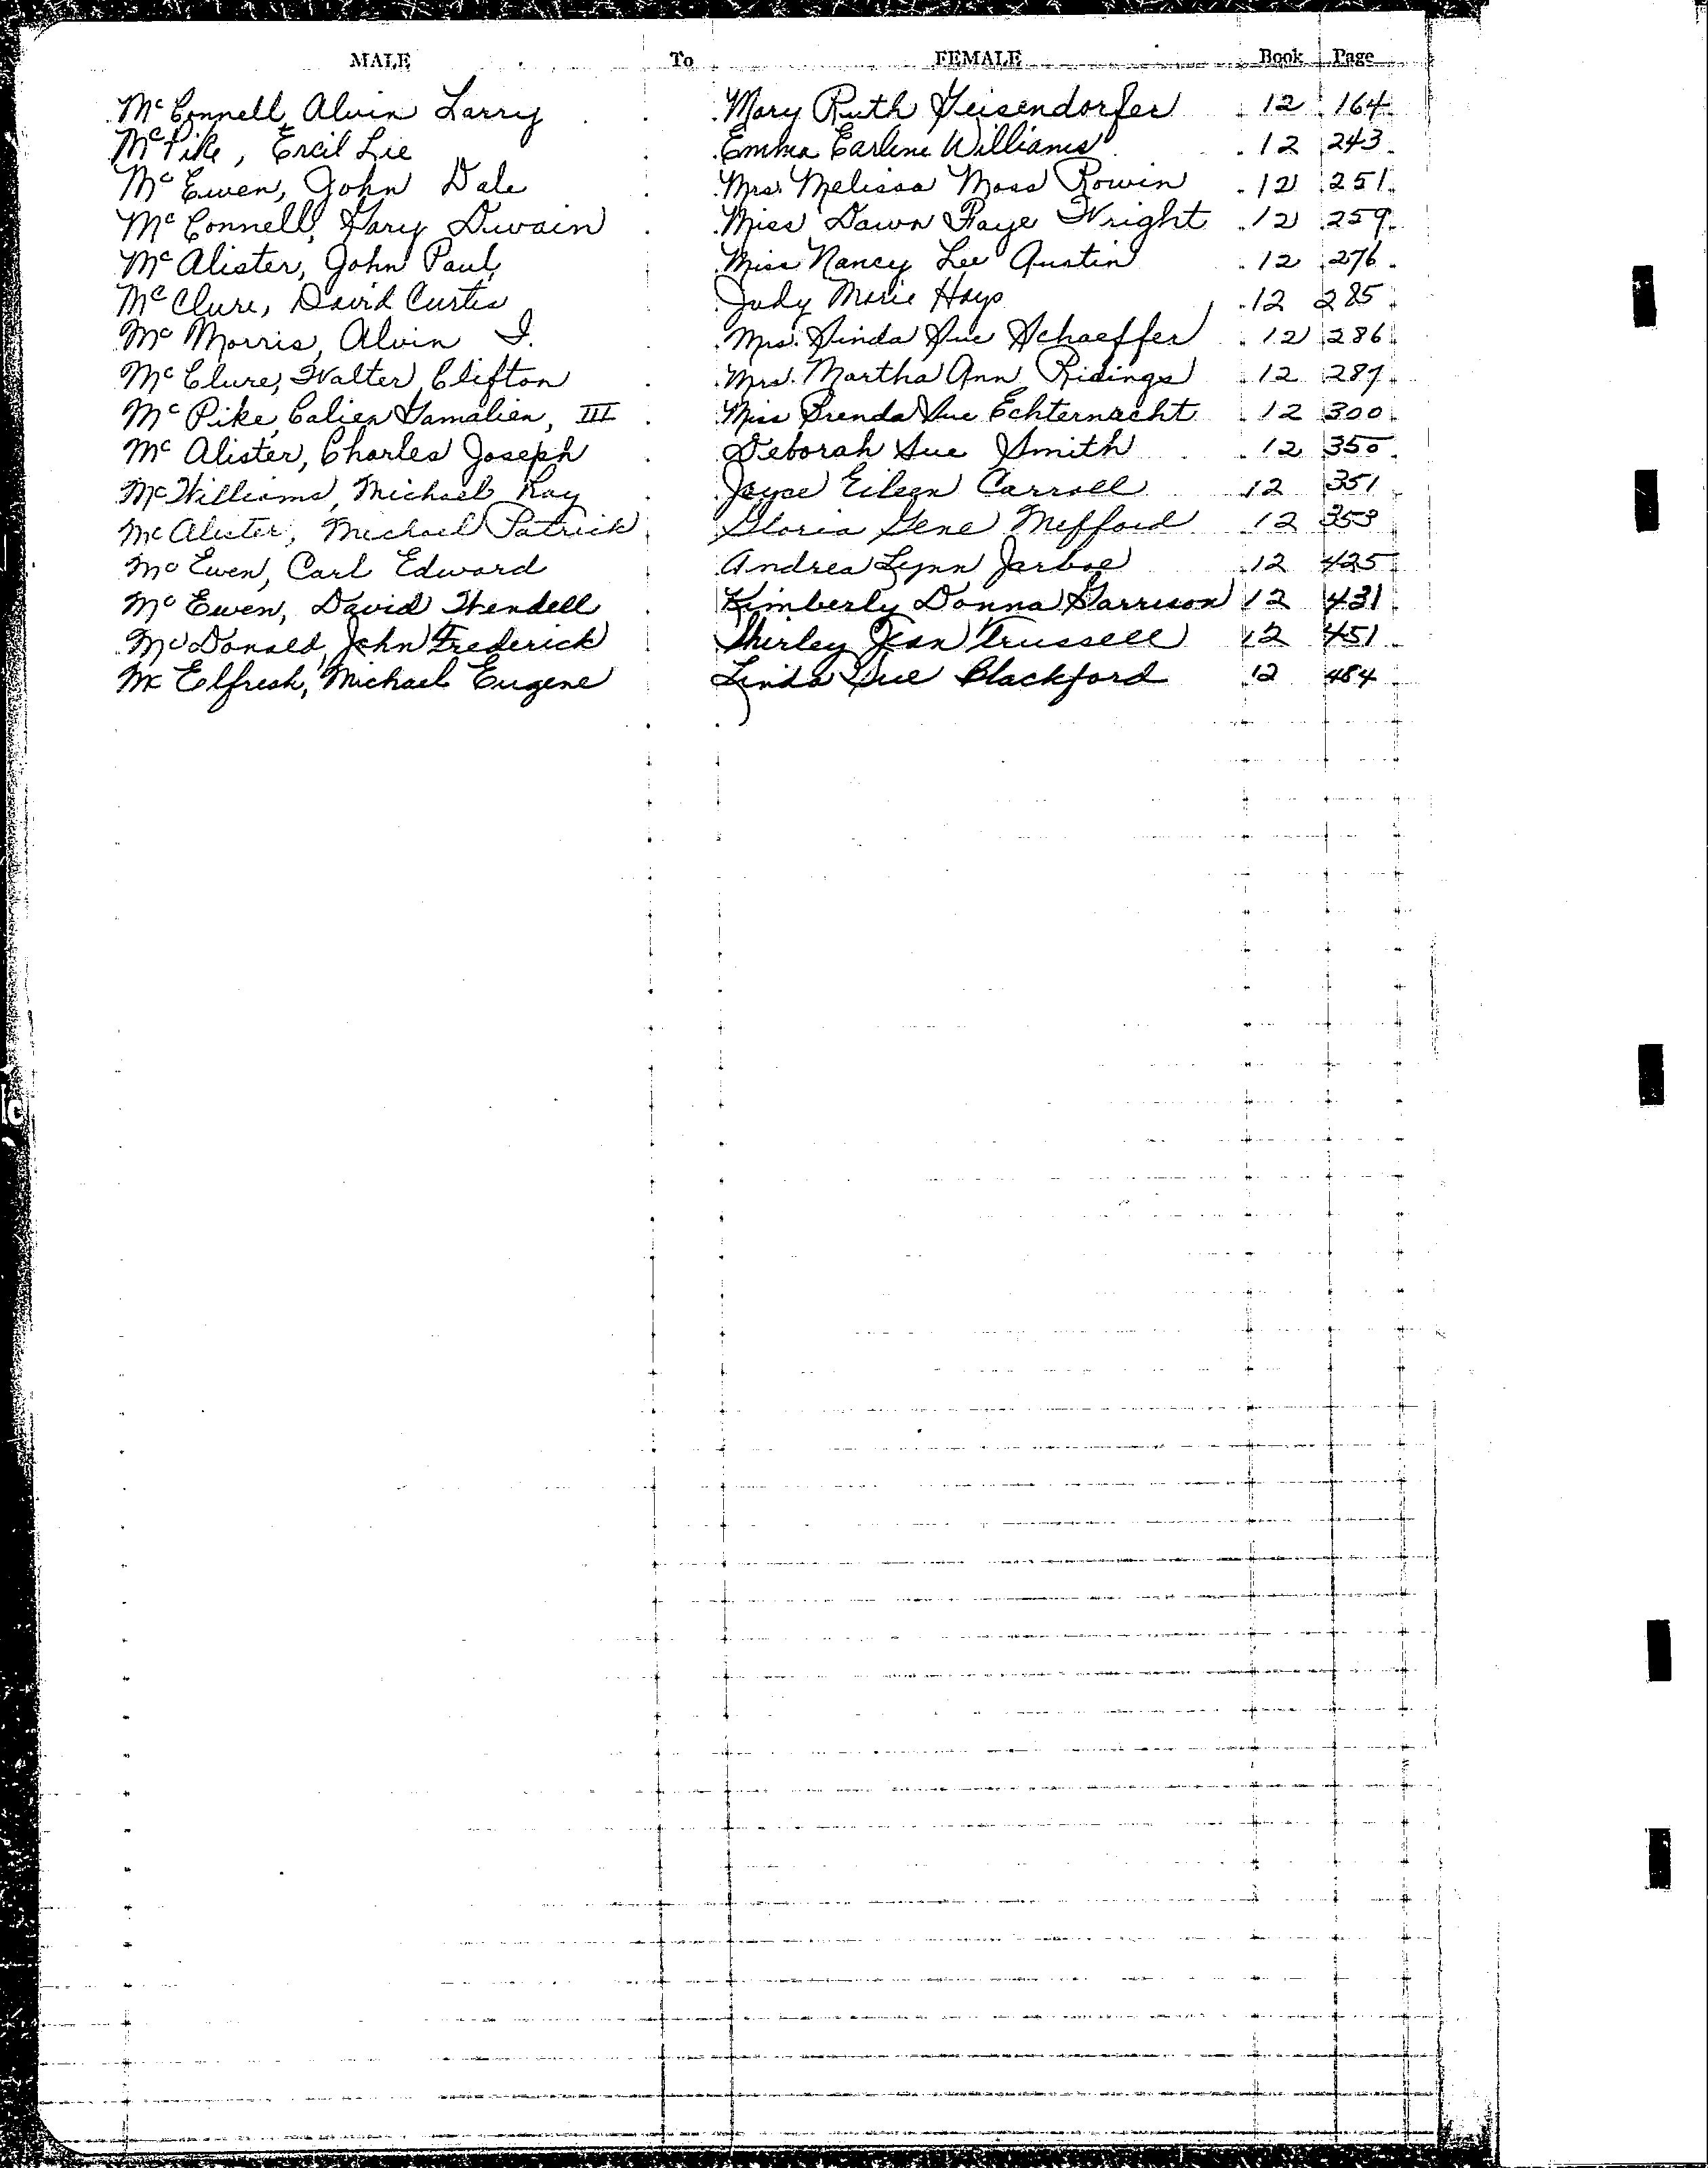 MALE To FEMALE Book Page
McConnell, Alvin Larry Mary Ruth Geisendorfer 12 164
McPike, Ercil Lee Emma Earlene Williams 12 243
McEwen, John Dale Mrs. Melissa Moss Rowin 12 251
McConnell, Gary Dwain Miss Dawn Faye Wright 12 259
McAlister, John Paul Miss Nancy Lee Austin 12 276
McClure, David Curtis Judy Marie Hays 12 285
McMorris, Alvin I. Mrs. Linda Sue Schaeffer 12 286
McClure, Walter Clifton Mrs. Martha Ann Ridings 12 287
McPike, Galien Gamalien, III Miss Brenda Sue Echternacht 12 300
McAlister, Charles Joseph Deborah Sue Smith 12 350
McWilliams, Michael Ray Joyce Eileen Carroll 12 351
McAlister, Michael Patrick Gloria Gene Mefford 12 353
McEwen, Carl Edward Andrea Lynn Jarboe 12 425
McEwen, David Wendell Kimberly Donna Garrison 12 431
McDonald, John Frederick Shirley Jean Trussell 12 451
McElfresh, Michael Eugene Linda Sue Blackford 12 484